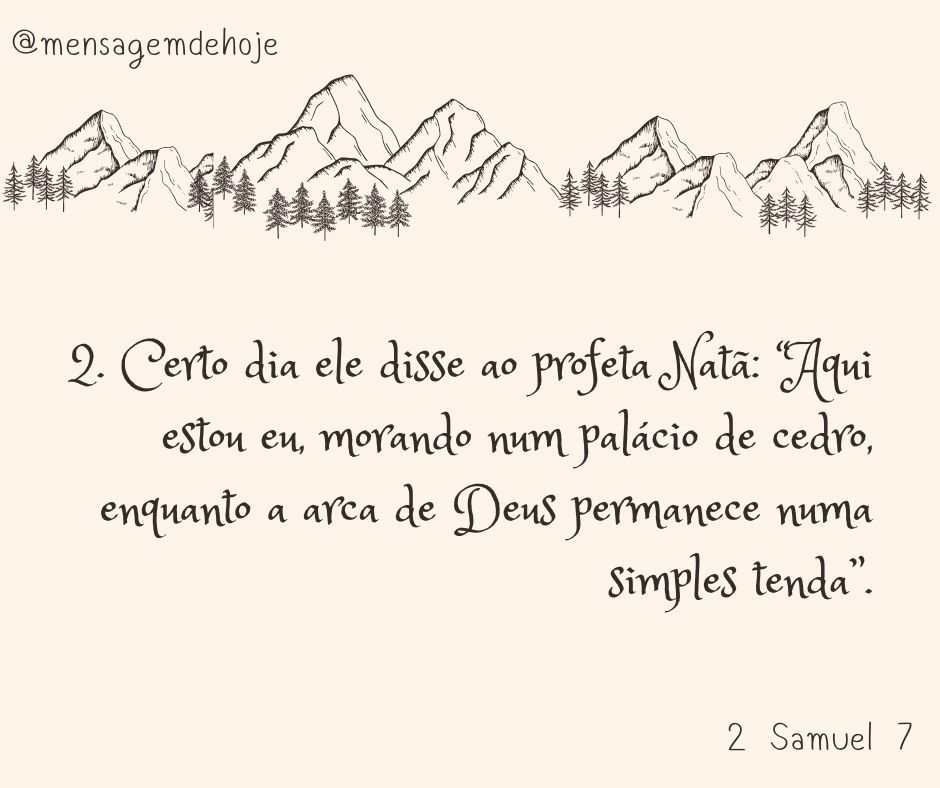 @mensagemdehoje
2. Certo dia ele disse ao profeta Natã: “Aqui
estou eu, morando num palácio de cedro,
enquanto a arca de Deus permanece numa
simples tenda”.
2 Samuel 7